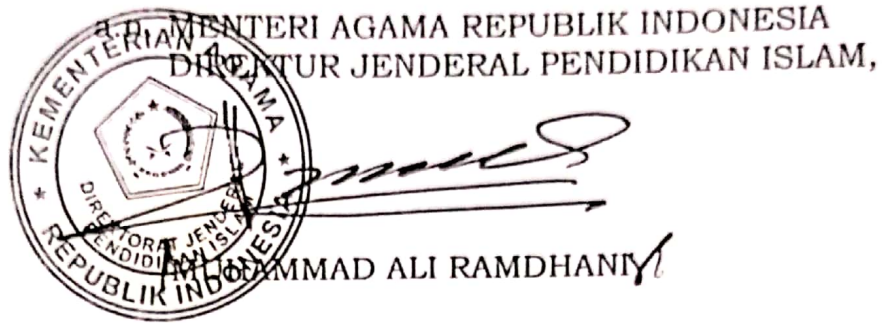 a.n. MENTERI AGAMA REPUBLIK INDONESIA
DIREKTUR JENDERAL PENDIDIKAN ISLAM,
KEMENTERIAN AGAMA
REPUBLIK INDONESIA
DIREKTORAT JENDERAL
PENDIDIKAN ISLAM
MUHAMMAD ALI RAMDHANI